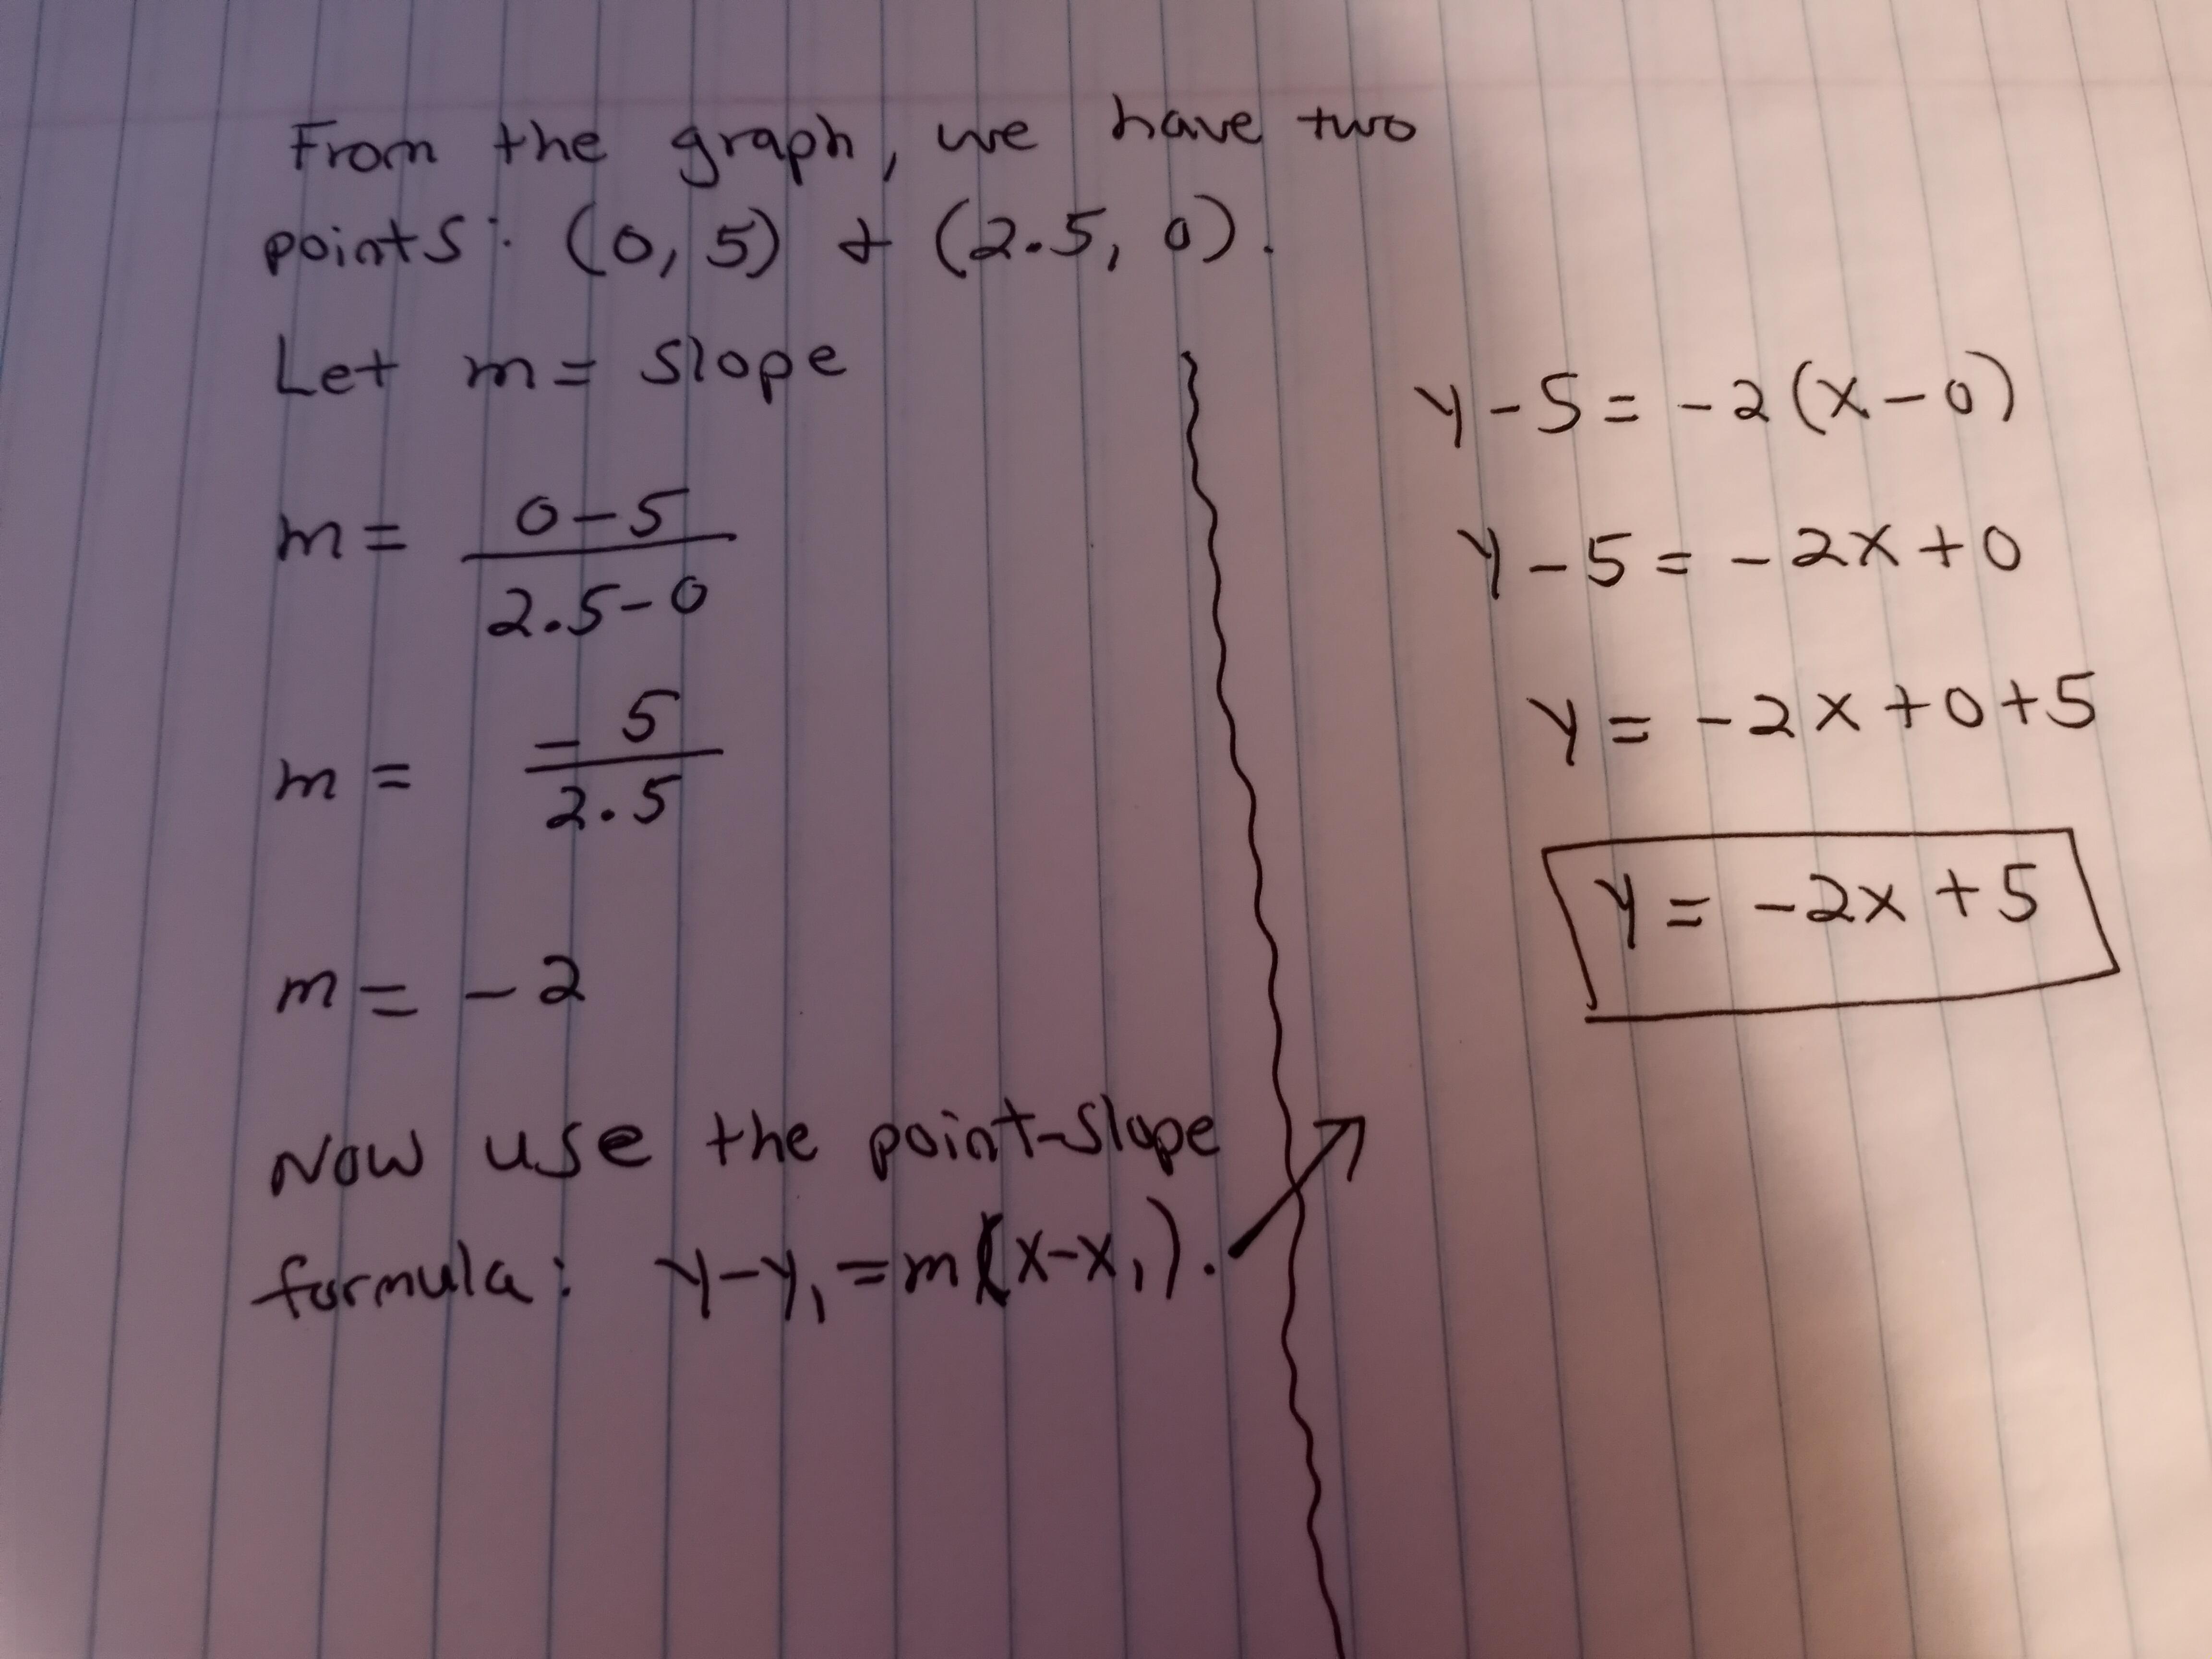 From the graph, we have two
points: (0, 5) & (2.5, 0).
Let m = slope
m = 0-5
2.5-0
m = -5
2.5
m = -2
Now use the point-slope
formula: y-y₁=m(x-x₁).
y-5 = -2(x-0)
y-5 = -2x+0
y = -2x+0+5
y = -2x+5